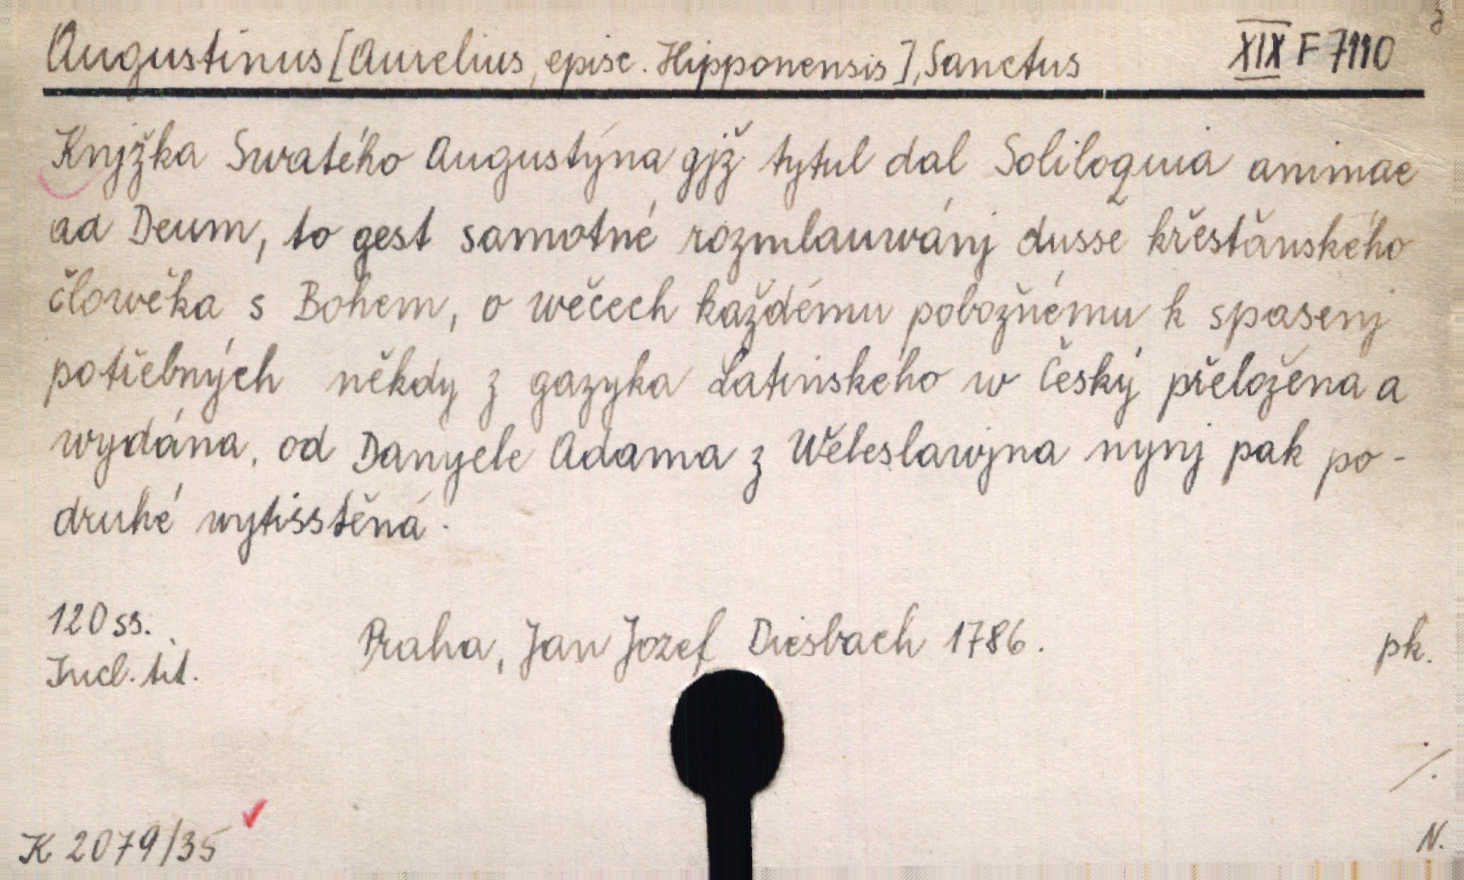 Augustinus [Aurelius, episc. Hipponensis], Sanctus XIX F 7110
Knjžka Swatého Augustýna gjž tytul dal Soliloquia animae
ad Deum, to gest samotné rozmlauwánj dusse křestǎnského
člowěka s Bohem, o wěcech každému pobožnému k spasenj
potřebných někdy z gazyka Latinského w Český přeložena a
wydána, od Danyele Adama z Weleslawjna nynj pak po-
druhé wytisstěná.
120 ss.
Incl. tit.
Praha, Jan Jozef Diesbach 1786.
pk.
K 2079/35
N.